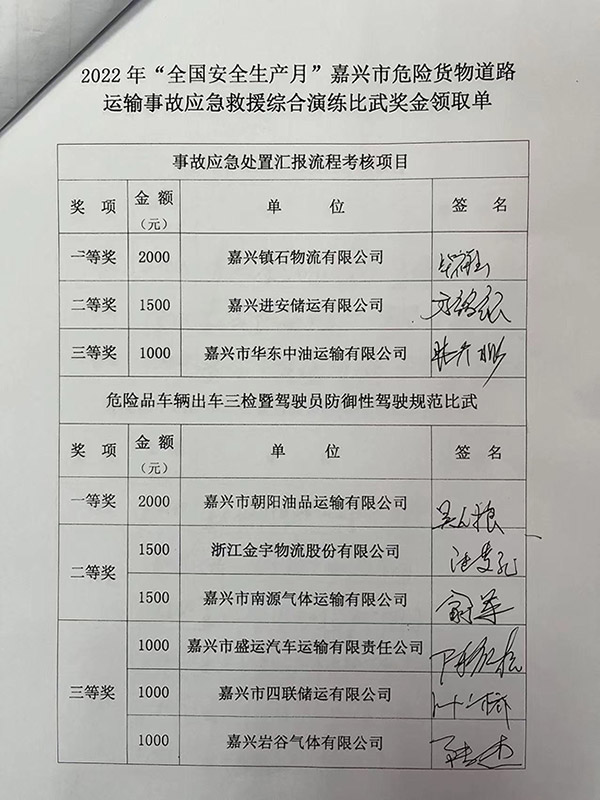 2022年“全国安全生产月”嘉兴市危险货物道路
运输事故应急救援综合演练比武奖金领取单
事故应急处置汇报流程考核项目
奖 项 金 额 （元） 单 位 签 名
一等奖 2000 嘉兴镇石物流有限公司
二等奖 1500 嘉兴进安储运有限公司
三等奖 1000 嘉兴市华东中油运输有限公司
危险品车辆出车三检暨驾驶员防御性驾驶规范比武
奖 项 金 额 （元） 单 位 签 名
一等奖 2000 嘉兴市朝阳油品运输有限公司
二等奖 1500 浙江金宇物流股份有限公司
1500 嘉兴市南源气体运输有限公司
三等奖 1000 嘉兴市盛运汽车运输有限责任公司
1000 嘉兴市四联储运有限公司
1000 嘉兴岩谷气体有限公司